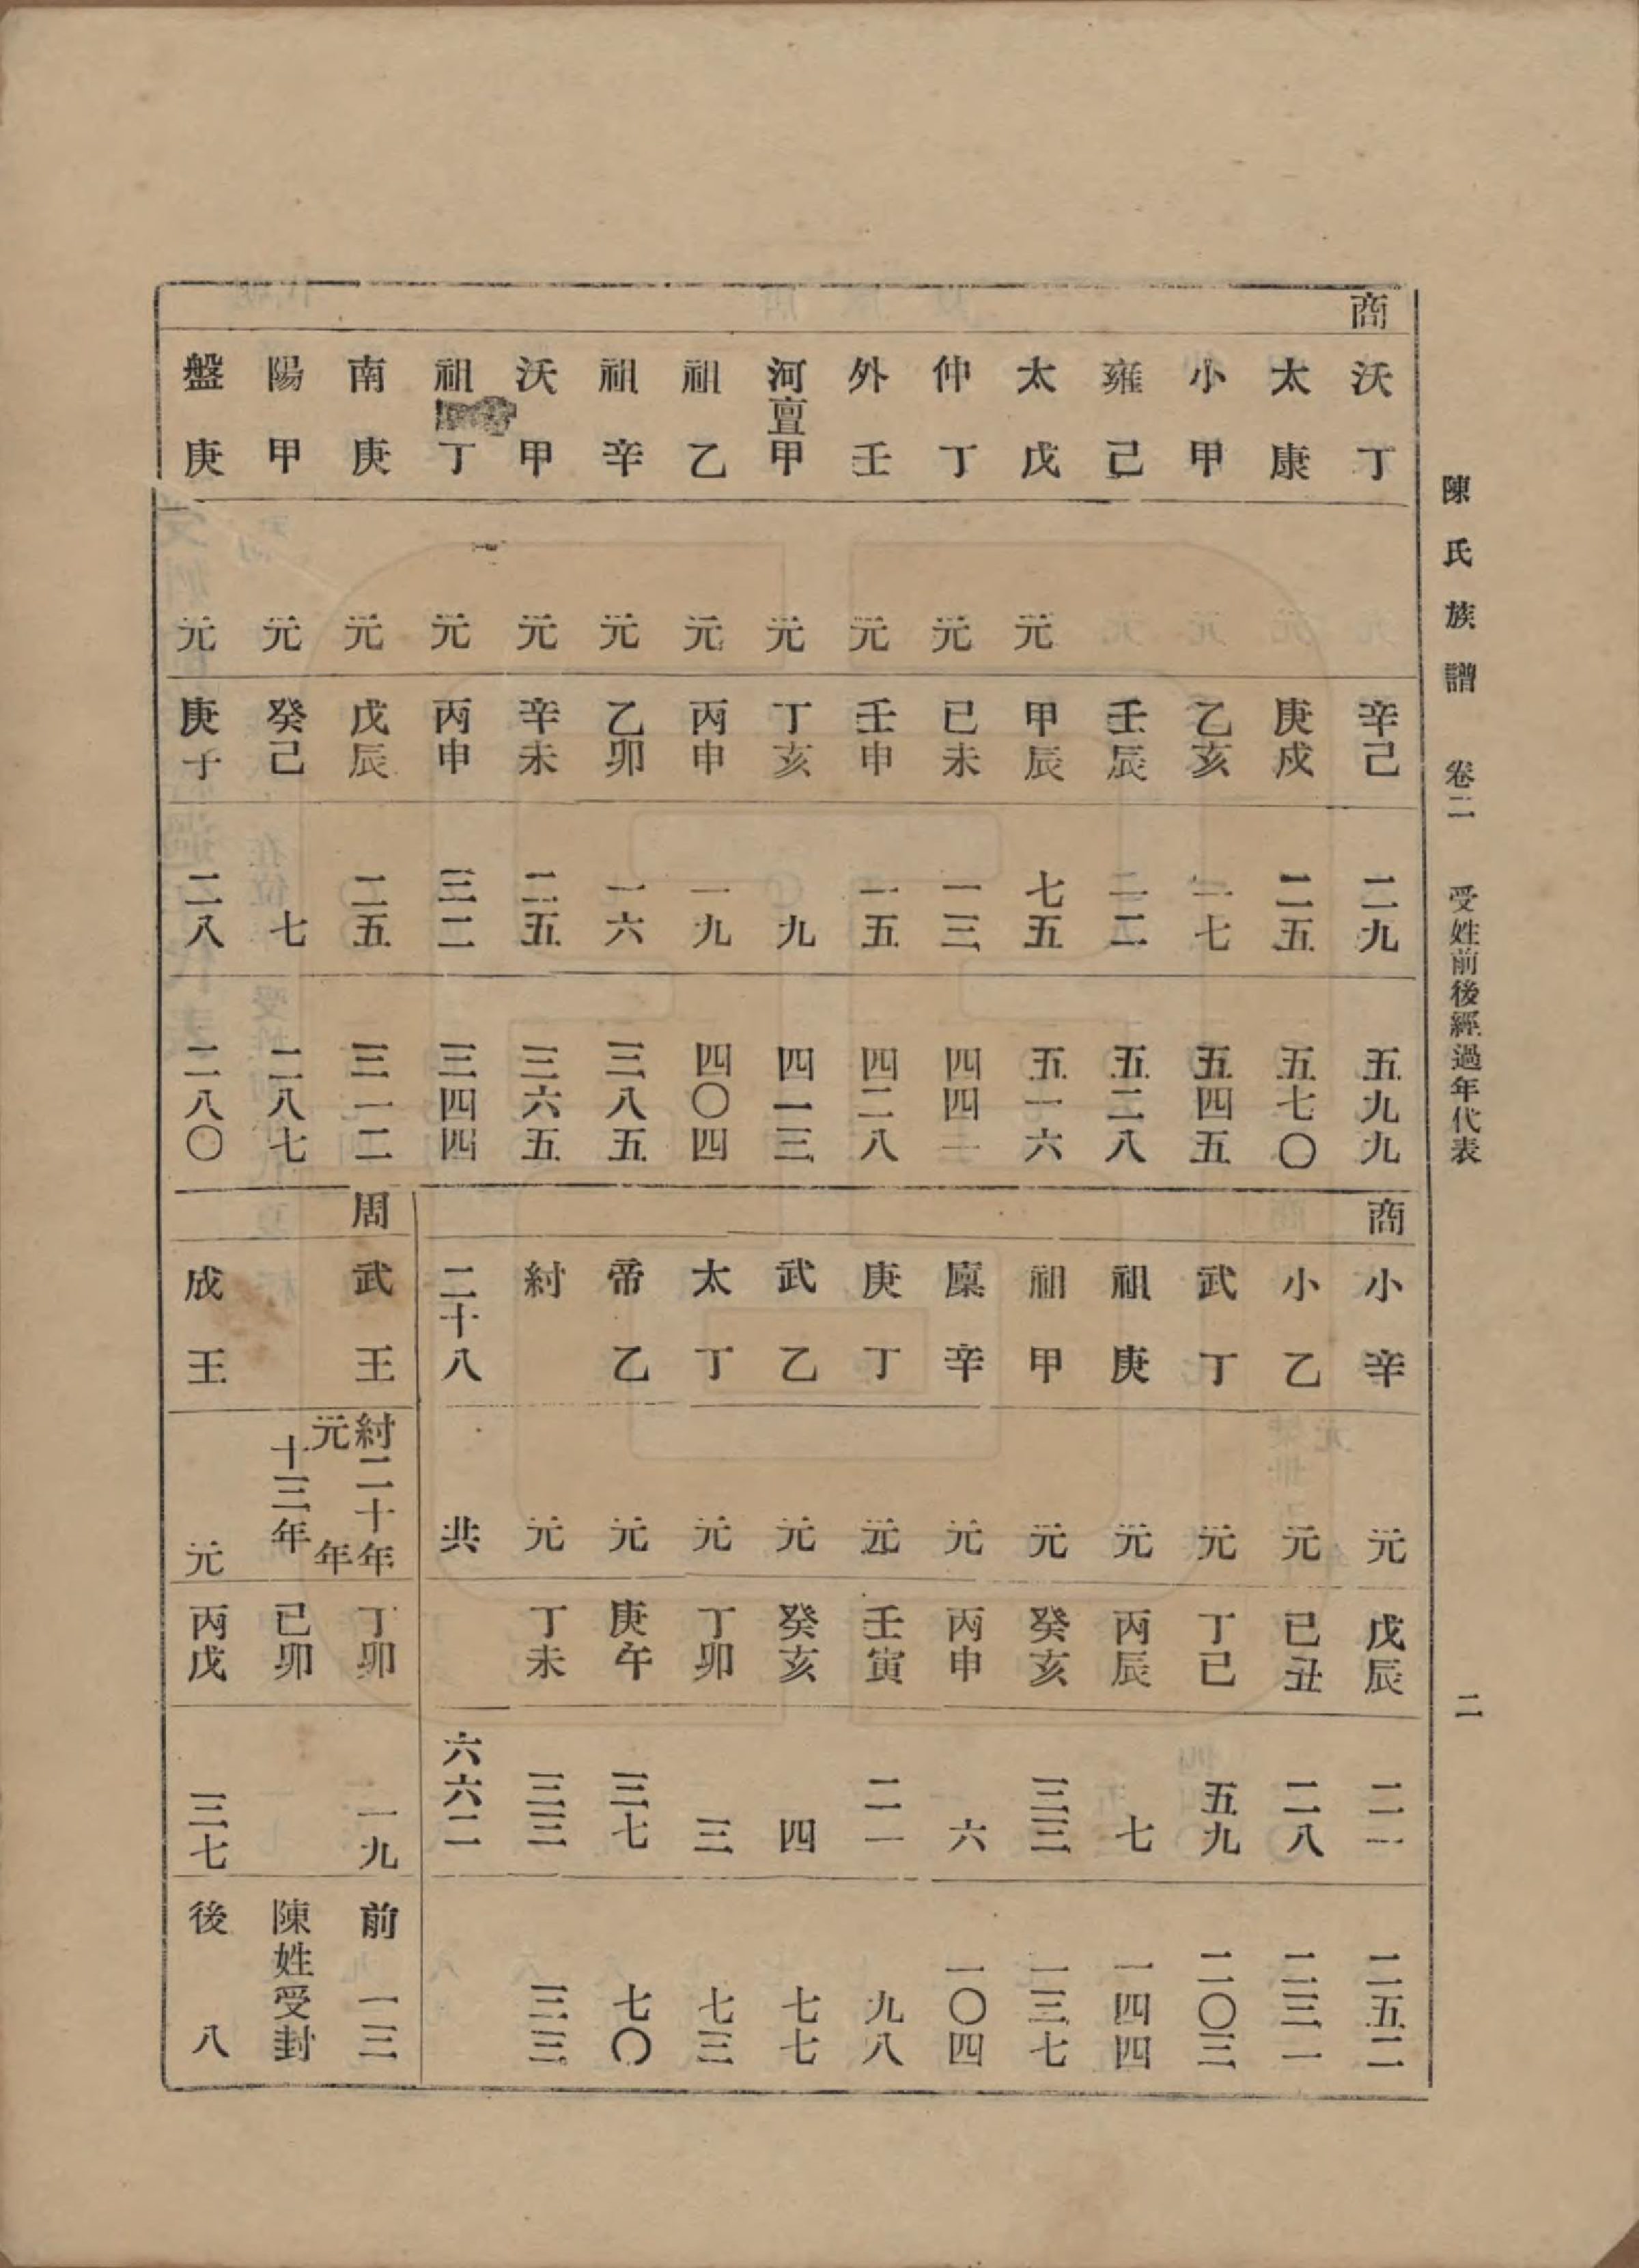 陳氏族譜 卷二 受姓前後經過年代表 二
商
沃丁 辛己 二九 五九九
太康 庚戍 二五 五七〇
小甲 乙亥 一七 五四五
雍己 壬辰 一二 五二八
太戊 元 甲辰 七五 五一六
仲丁 元 已未 一三 四四一
外壬 元 壬申 一五 四二八
河亶甲 元 丁亥 九 四一三
祖乙 元 丙申 一九 四〇四
祖辛 元 乙卯 一六 三八五
沃甲 元 辛未 二五 三六五
祖丁 元 丙申 三二 三四四
南庚 元 戊辰 二五 三一二
陽甲 元 癸己 七 二八七
盤庚 元 庚子 二八 二八〇
商
小辛 元 戊辰 二一 二五二
小乙 元 已丑 二八 二三一
武丁 元 丁已 五九 二〇三
祖庚 元 丙辰 七 一四四
祖甲 元 癸亥 三三 一三七
廩辛 元 丙申 六 一〇四
庚丁 元 壬寅 二一 九八
武乙 元 癸亥 四 七七
太丁 元 丁卯 三 七三
帝乙 元 庚午 三七 七〇
紂 元 丁未 三三 三三
二十八 共 六六二
周
武王 紂二十年 元年 丁卯 一九 前 一三
十三年 已卯 陳姓受封
成王 元 丙戊 三七 後 八